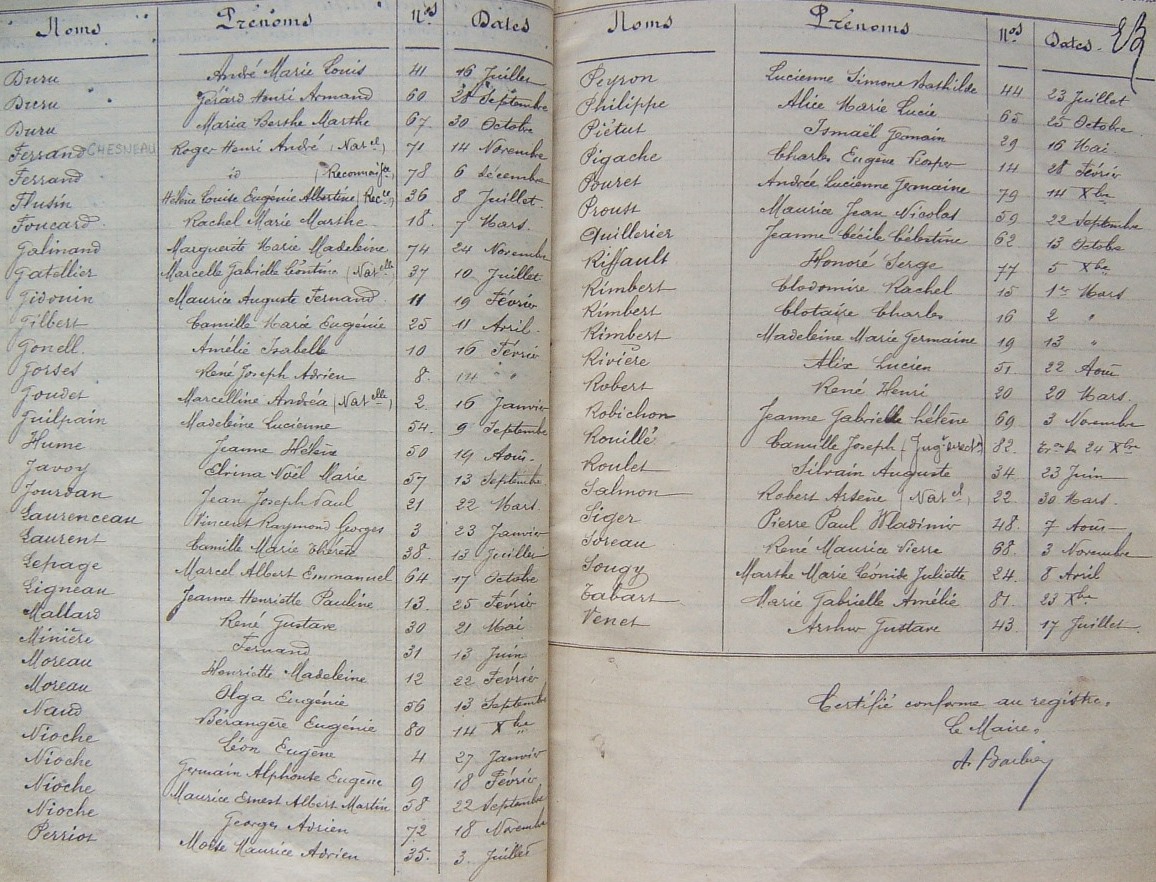 Noms Prénoms Nos Dates
Duru André Marie Louis 41 16 Juillet
Duru Gérard Henri Armand 60 28 Septembre
Duru Maria Berthe Marthe 67 30 Octobre
Ferrand CHESNEAU Roger Henri André (Nat el) 71 14 Novembre
Ferrand id (Reconnaissce) 78 6 Décembre
Flusin Hélène Louise Eugénie Albertine (Recce) 36 8 Juillet
Foucard Rachel Marie Marthe 18. 7 Mars.
Galinand Marguerite Marie Madeleine 74 24 Novembre
Gatellier Marcelle Gabrielle Léontine (Natelle) 37 10 Juillet
Gidouin Maurice Auguste Fernand 11 19 Février
Gilbert Camille Marie Eugénie 25 11 Avril.
Gonell. Amélie Isabelle 10 16 Février
Gorses René Joseph Adrien 8. 14 " "
Goudet Marcelline Andréa (Natelle) 2 16 Janvier
Guilpain Madeleine Lucienne 54. 9 Septembre
Hume Jeanne Hélène 50 19 Août
Javoy Elvina Noël Marie 57 13 Septembre
Jourdan Jean Joseph Paul 21 22 Mars.
Laurenceau Vincent Raymond Georges 3 23 Janvier
Laurent Camille Marie Thérèse 38. 13 Juillet
Lepage Marcel Albert Emmanuel 64 17 Octobre
Ligneau Jeanne Henriette Pauline 13. 25 Février
Mallard René Gustave 30 21 Mai
Minière Fernand 31 13 Juin
Moreau Henriette Madeleine 12 22 Février
Moreau Olga Eugénie 56 13 Septembre
Naud Bérangère Eugénie 80 14 Xbre
Nioche Léon Eugène 4 27 Janvier
Nioche Germain Alphonse Eugène 9 18 Février
Nioche Maurice Ernest Albert Martin 58 22 Septembre
Nioche Georges Adrien 72 18 Novembre
Perriot Moïse Maurice Adrien 35. 3 Juillet
Noms Prénoms Nos Dates.
Peyron Lucienne Simone Mathilde 44 23 Juillet
Philippe Alice Marie Lucie 65 25 Octobre
Piétut Ismaël Germain 29 16 Mai
Pigache Charles Eugène Prosper 14 28 Février
Pouret Andrée Lucienne Germaine 79 14 Xbre
Proust Maurice Jean Nicolas 59 22 Septembre
Quillerier Jeanne Cécile Célestine 62 13 Octobre
Riffault Honoré Serge 77 5 Xbre
Rimbert Clodomire Rachel 15 1er Mars
Rimbert Clotaire Charles 16 2 "
Rimbert Madeleine Marie Germaine 19 13 "
Rivière Alix Lucien 51 22 Août
Robert René Henri 20 20 Mars.
Robichon Jeanne Gabrielle Hélène 69 3 Novembre
Rouillé Camille Joseph 82. 24 Xbre
Roulet Silvain Auguste 34. 23 Juin
Salmon Robert Arsène (Nat el) 22. 30 Mars.
Siger Pierre Paul Wladimir 48. 7 Août
Soreau René Maurice Pierre 68. 3 Novembre
Sougy Marthe Marie Léonide Juliette 24. 8 Avril
Tabart Marie Gabrielle Amélie 81. 23 Xbre
Venet Arthur Gustave 43. 17 Juillet.
Certifié conforme au registre.
Le Maire.